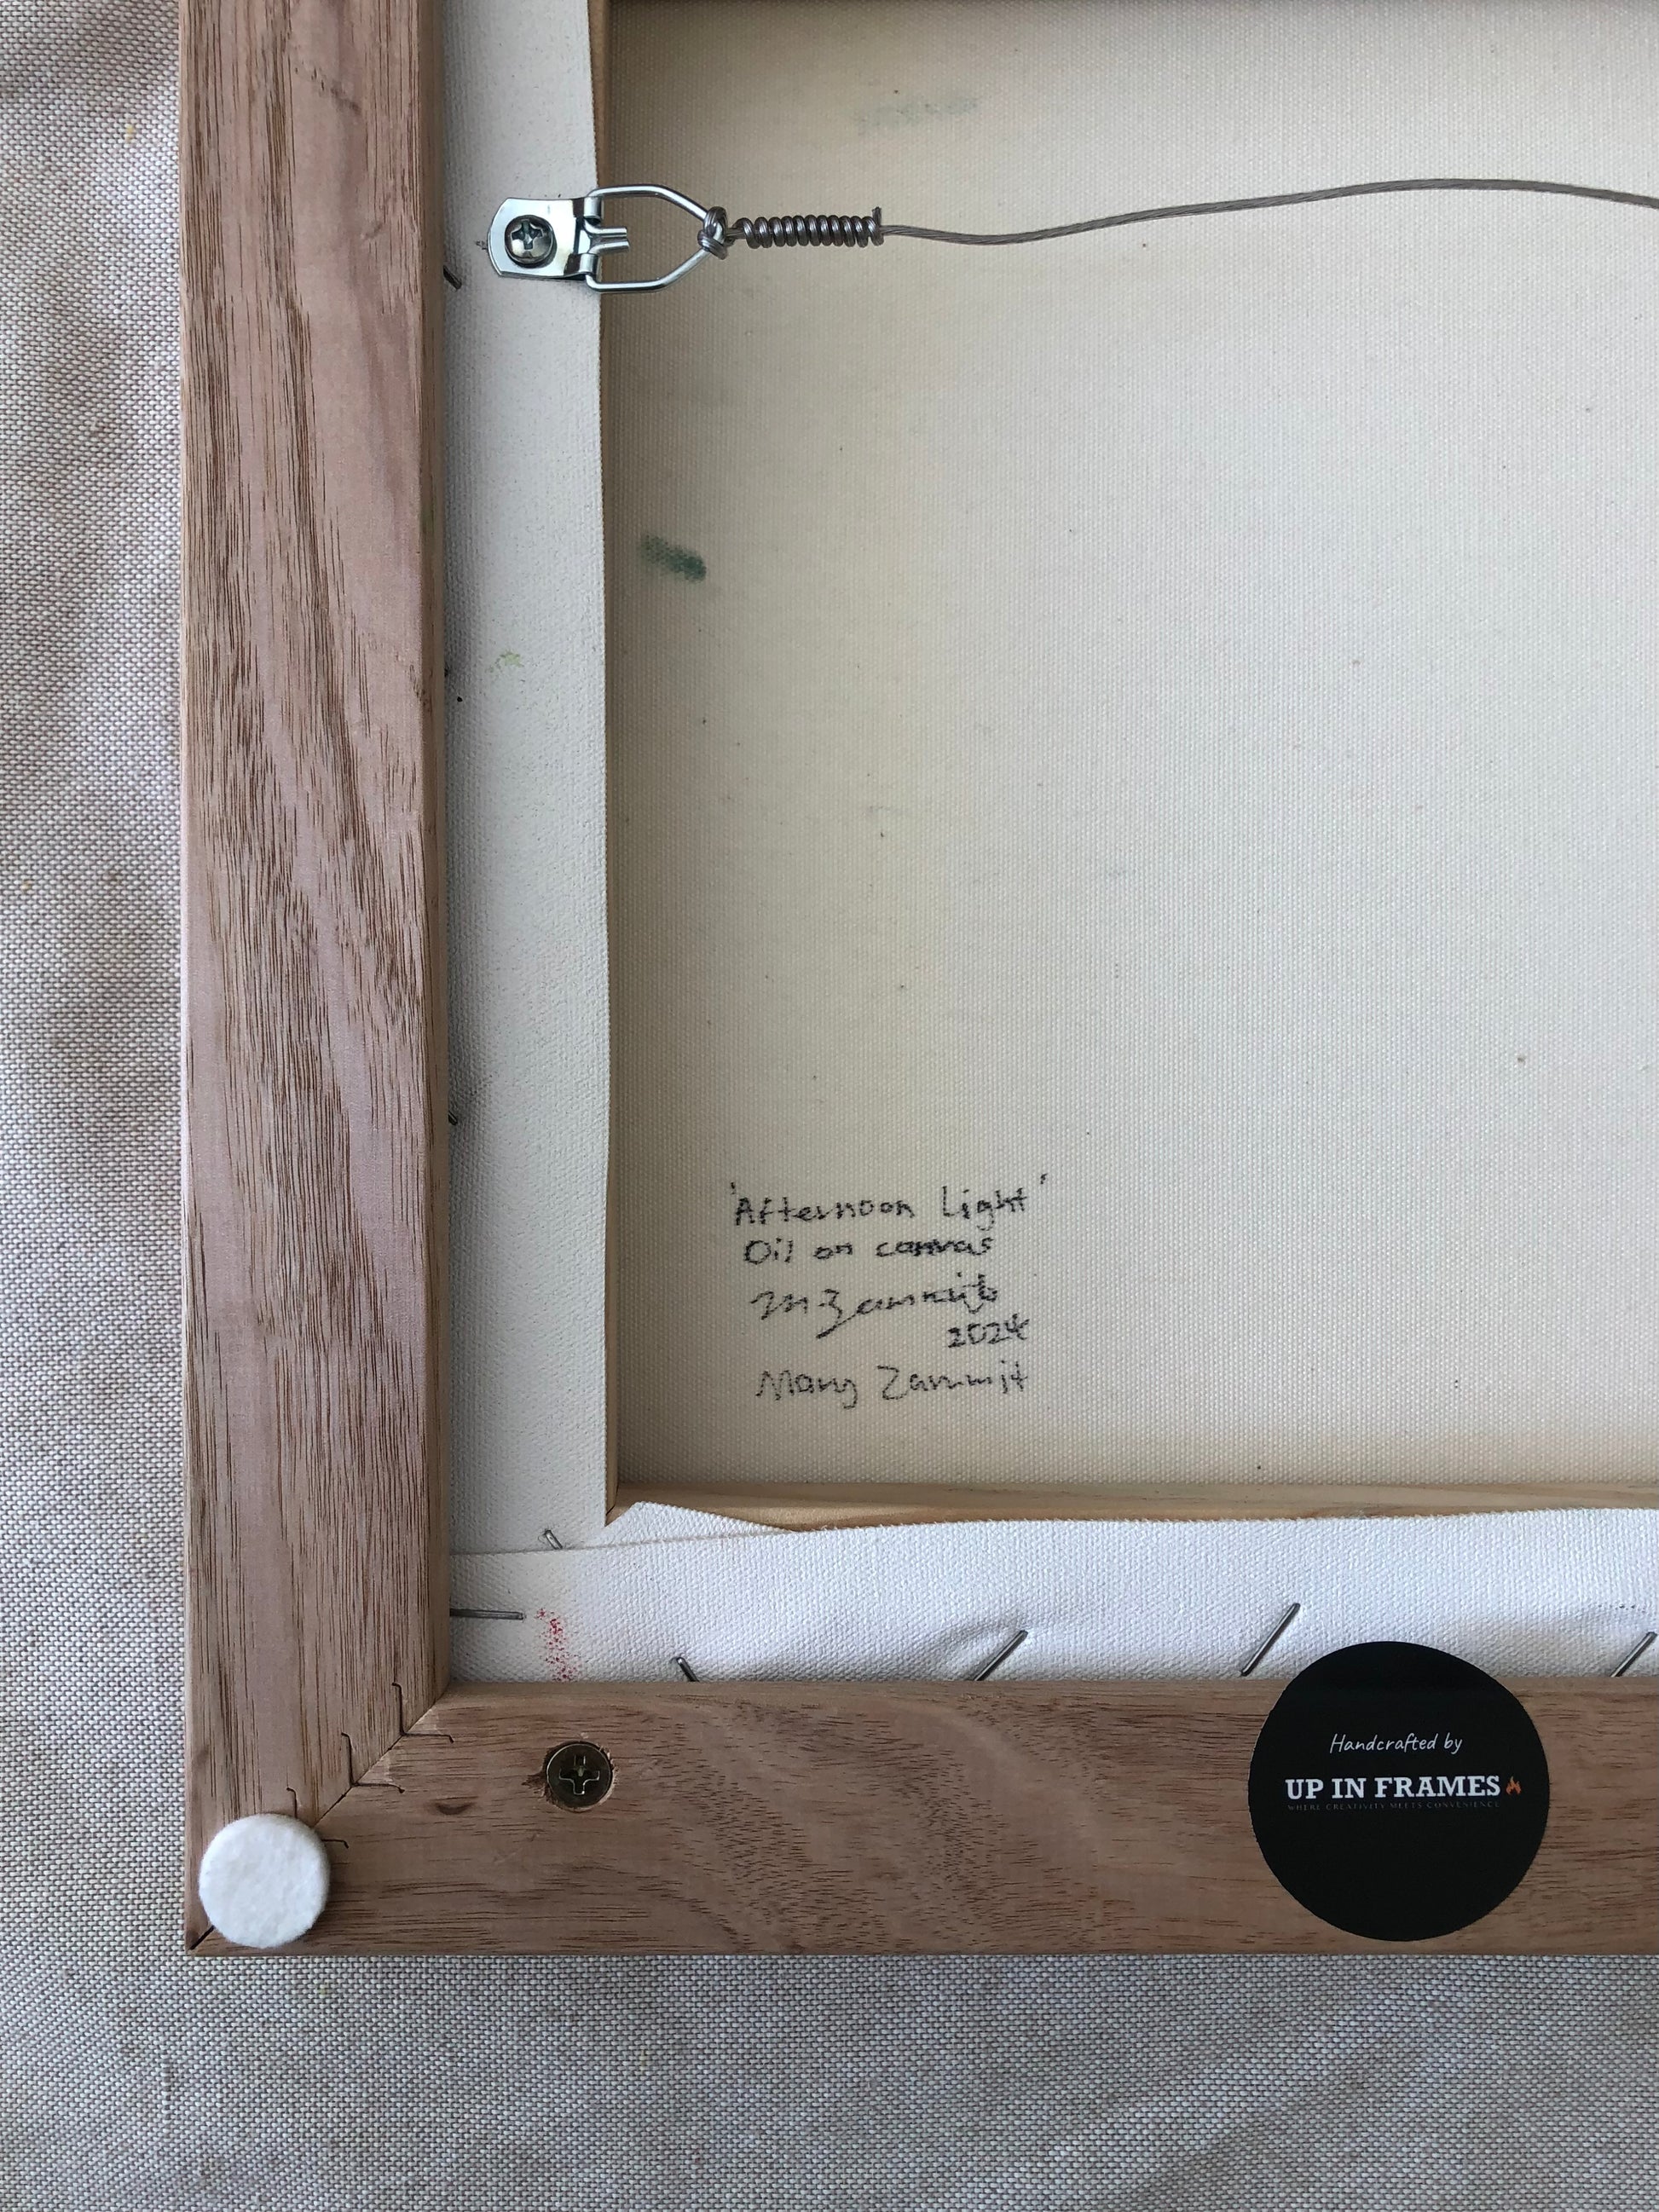 'Afternoon Light'
Oil on canvas
M Zammit
2024
Mary Zammit
Handcrafted by
UP IN FRAMES
WHERE CREATIVITY MEETS CONVENIENCE